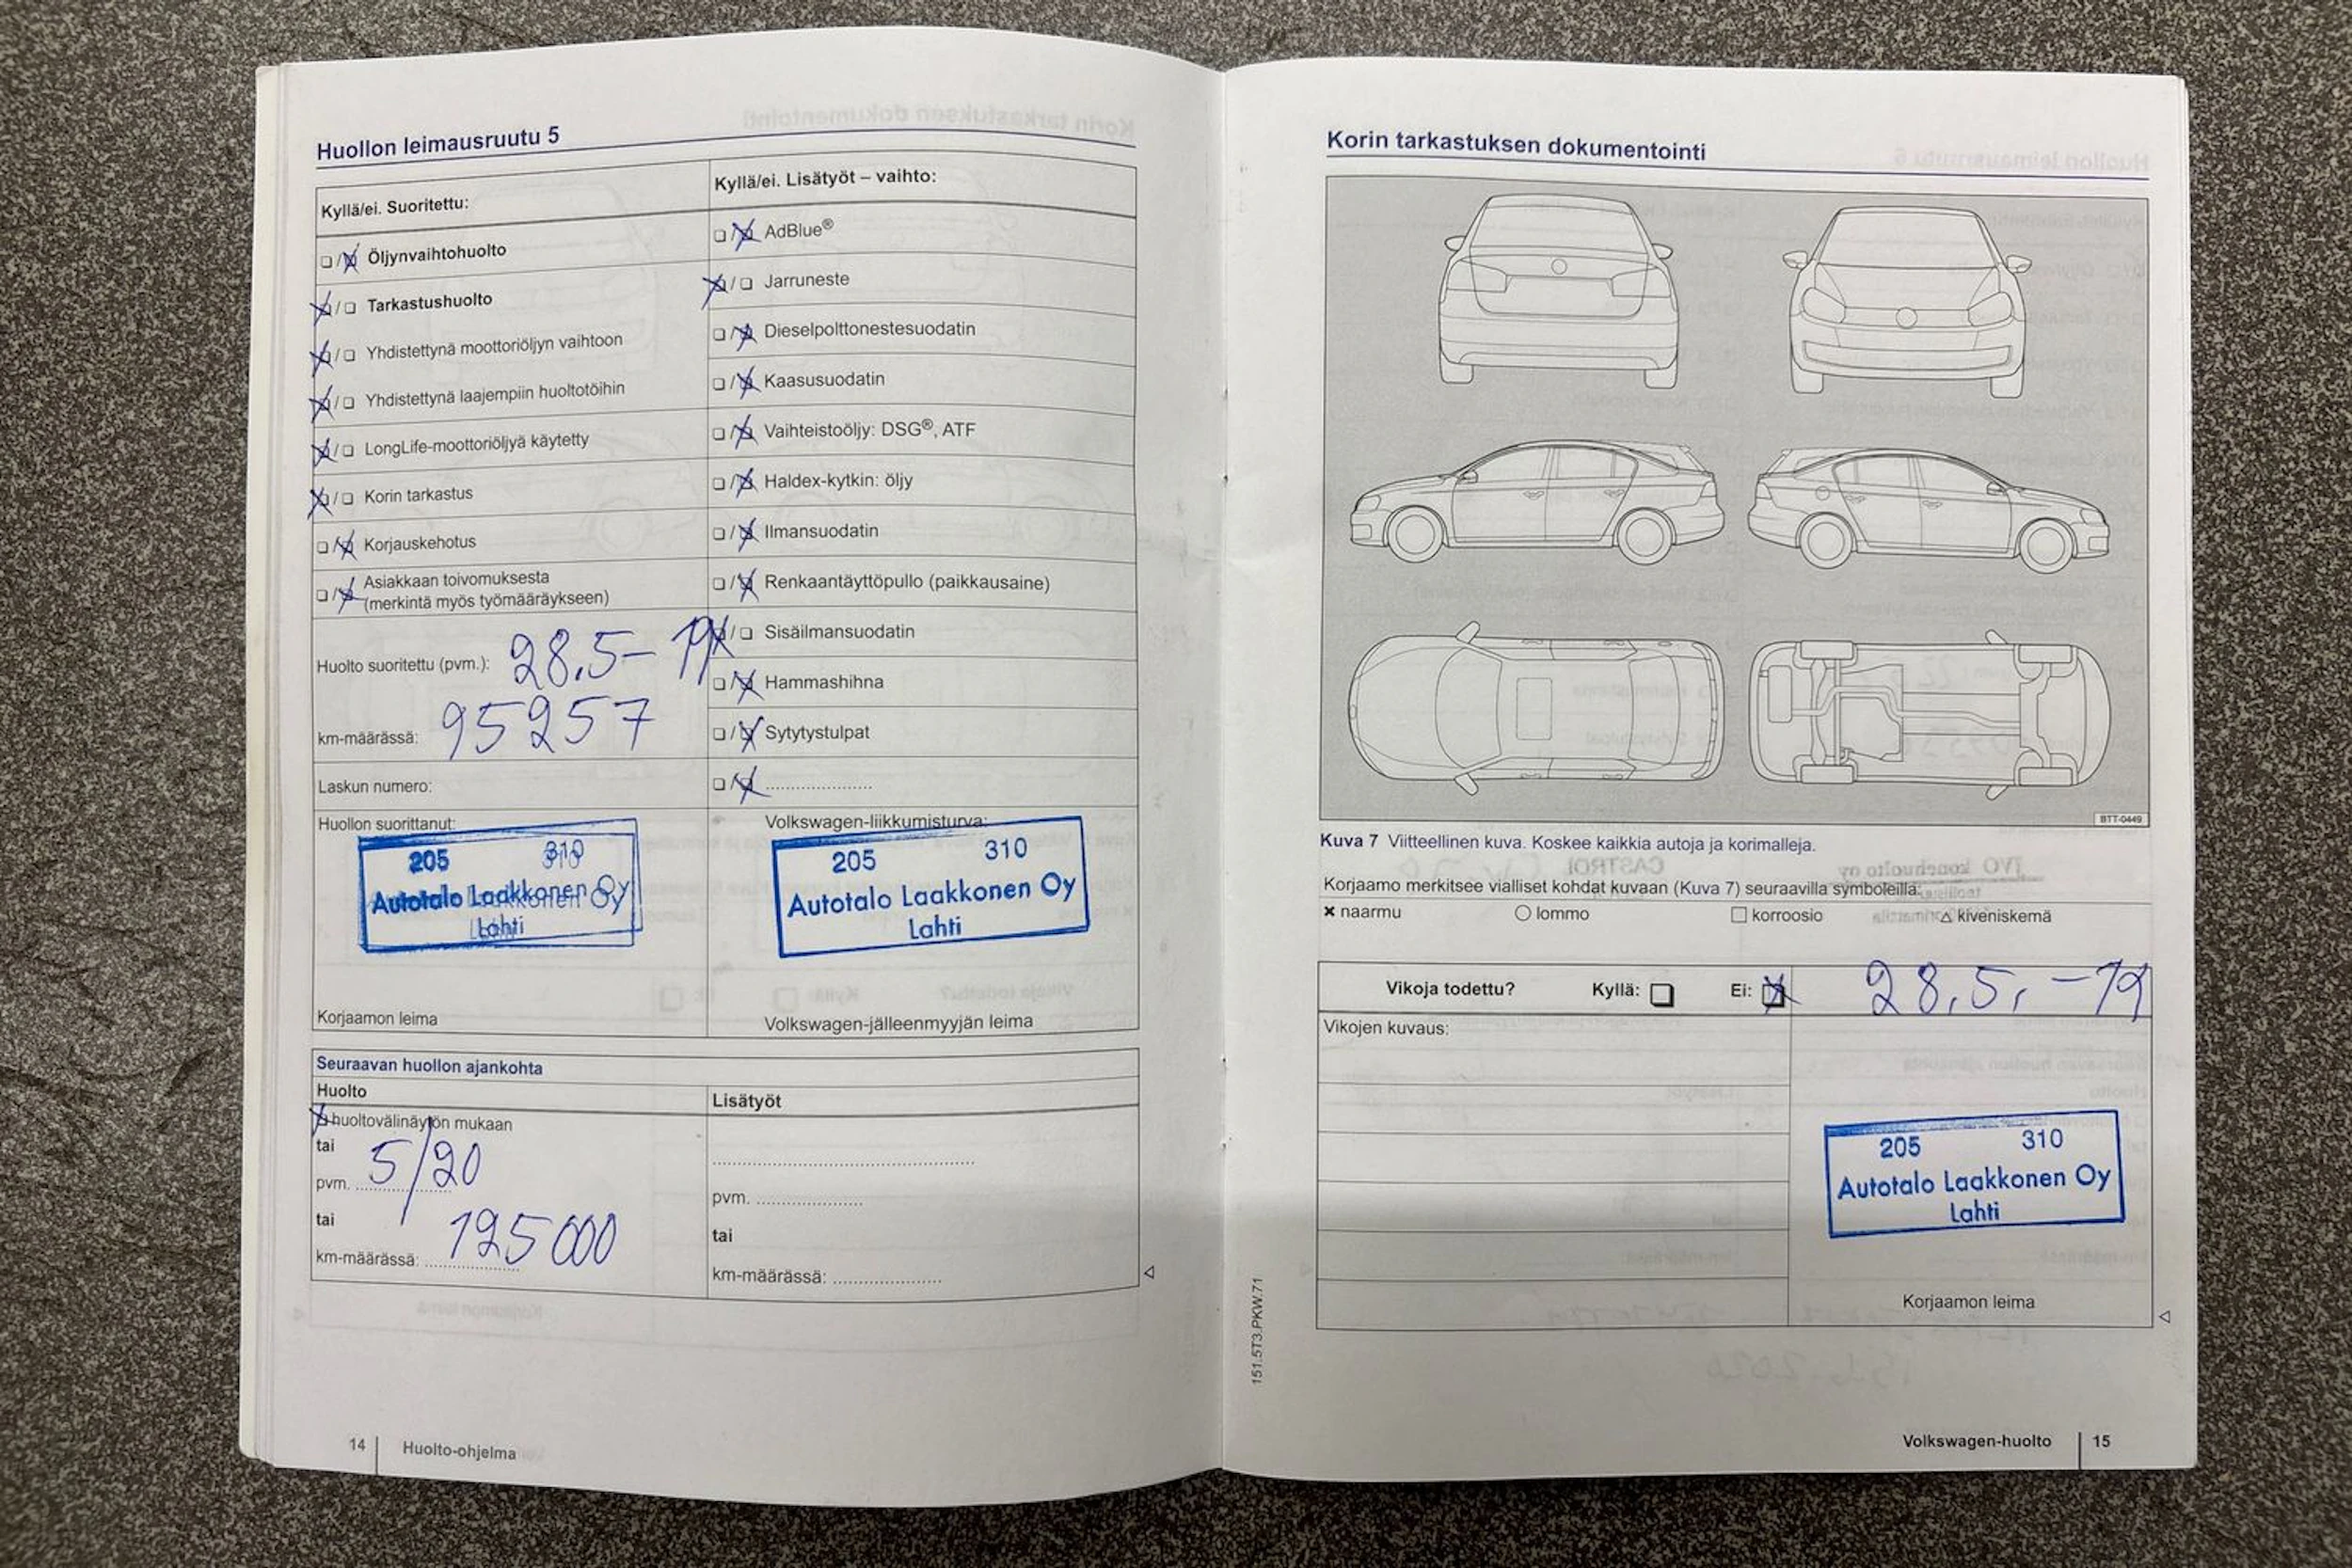 Huollon leimausruutu 5
Kyllä/ei. Suoritettu:
Öljynvaihtohuolto
Tarkastushuolto
Yhdistettynä moottoriöljyn vaihtoon
Yhdistettynä laajempiin huoltotöihin
LongLife-moottoriöljyä käytetty
Korin tarkastus
Korjauskehotus
Asiakkaan toivomuksesta
(merkintä myös työmääräykseen)
Huolto suoritettu (pvm.): 28.5-19
km-määrässä: 95257
Laskun numero:
Huollon suorittanut:
205 310
Autotalo Laakkonen Oy
Lahti
Korjaamon leima
Kyllä/ei. Lisätyöt – vaihto:
AdBlue®
Jarruneste
Dieselpolttonestesuodatin
Kaasusuodatin
Vaihteistoöljy: DSG®, ATF
Haldex-kytkin: öljy
Ilmansuodatin
Renkaantäyttöpullo (paikkausaine)
Sisäilmansuodatin
Hammashihna
Sytytystulpat
Volkswagen-liikkumisturva:
205 310
Autotalo Laakkonen Oy
Lahti
Volkswagen-jälleenmyyjän leima
Seuraavan huollon ajankohta
Huolto
huoltovälinäytön mukaan
tai
pvm. 5/20
tai
km-määrässä: 125000
Lisätyöt
pvm.
tai
km-määrässä:
14 Huolto-ohjelma
Korin tarkastuksen dokumentointi
BTT-0449
Kuva 7 Viitteellinen kuva. Koskee kaikkia autoja ja korimalleja.
Korjaamo merkitsee vialliset kohdat kuvaan (Kuva 7) seuraavilla symboleilla:
× naarmu ○ lommo □ korroosio △ kiveniskemä
Vikoja todettu? Kyllä: Ei: 28.5.-19
Vikojen kuvaus:
205 310
Autotalo Laakkonen Oy
Lahti
Korjaamon leima
151.5T3.PKW.71
Volkswagen-huolto 15